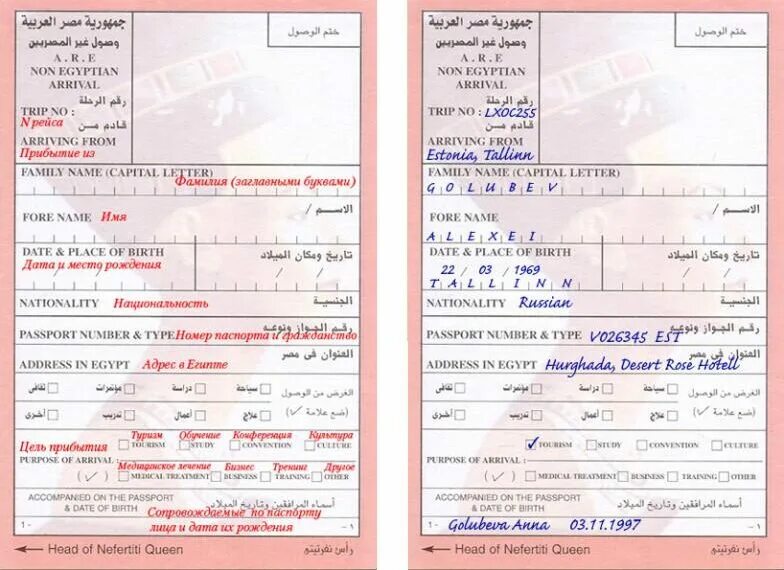 جمهورية مصر العربية
وصول غير المصريين
ختم الوصول
A . R . E
NON EGYPTIAN
ARRIVAL
رقم الرحلة
TRIP NO :
N рейса
قادم من
ARRIVING FROM
Прибытие из
FAMILY NAME (CAPITAL LETTER)
Фамилия (заглавными буквами)
الاســـم /
FORE NAME Имя
DATE & PLACE OF BIRTH
تاريخ ومكان الميلاد
Дата и место рождения
/ /
/ /
NATIONALITY Национальность الجنسية
رقم الجواز ونوعه
PASSPORT NUMBER & TYPE Номер паспорта и гражданство
العنوان فى مصر
ADDRESS IN EGYPT Адрес в Египте
الغرض من الوصول سياحة دراسة مؤتمرات ثقافى
(ضع علامة √) علاج أعمال تدريب أخرى
Туризм Обучение Конференция Культура
Цель прибытия TOURISM STUDY CONVENTION CULTURE
PURPOSE OF ARRIVAL :
Медицинское лечение Бизнес Тренинг Другое
( √ ) MEDICAL TREATMENT BUSINESS TRAINING OTHER
ACCOMPANIED ON THE PASSPORT
& DATE OF BIRTH
أسماء المرافقين وتاريخ الميلاد
Сопровождаемые по паспорту
1 - лица и дата их рождения – ١
← Head of Nefertiti Queen رأس نفرتيتى
جمهورية مصر العربية
وصول غير المصريين
ختم الوصول
A . R . E
NON EGYPTIAN
ARRIVAL
رقم الرحلة
TRIP NO : LXOC255
قادم من
ARRIVING FROM
Estonia, Tallinn
FAMILY NAME (CAPITAL LETTER)
G O L U B E V
الاســـم /
FORE NAME
A L E X E I
DATE & PLACE OF BIRTH
تاريخ ومكان الميلاد
22 / 03 / 1969
/ /
T A L L I N N
NATIONALITY Russian الجنسية
رقم الجواز ونوعه
PASSPORT NUMBER & TYPE V026345 EST
العنوان فى مصر
ADDRESS IN EGYPT Hurghada, Desert Rose Hotell
الغرض من الوصول سياحة دراسة مؤتمرات ثقافى
(ضع علامة √) علاج أعمال تدريب أخرى
✓ TOURISM STUDY CONVENTION CULTURE
PURPOSE OF ARRIVAL :
( √ ) MEDICAL TREATMENT BUSINESS TRAINING OTHER
ACCOMPANIED ON THE PASSPORT
& DATE OF BIRTH
أسماء المرافقين وتاريخ الميلاد
1 - Golubeva Anna 03.11.1997 – ١
← Head of Nefertiti Queen رأس نفرتيتى